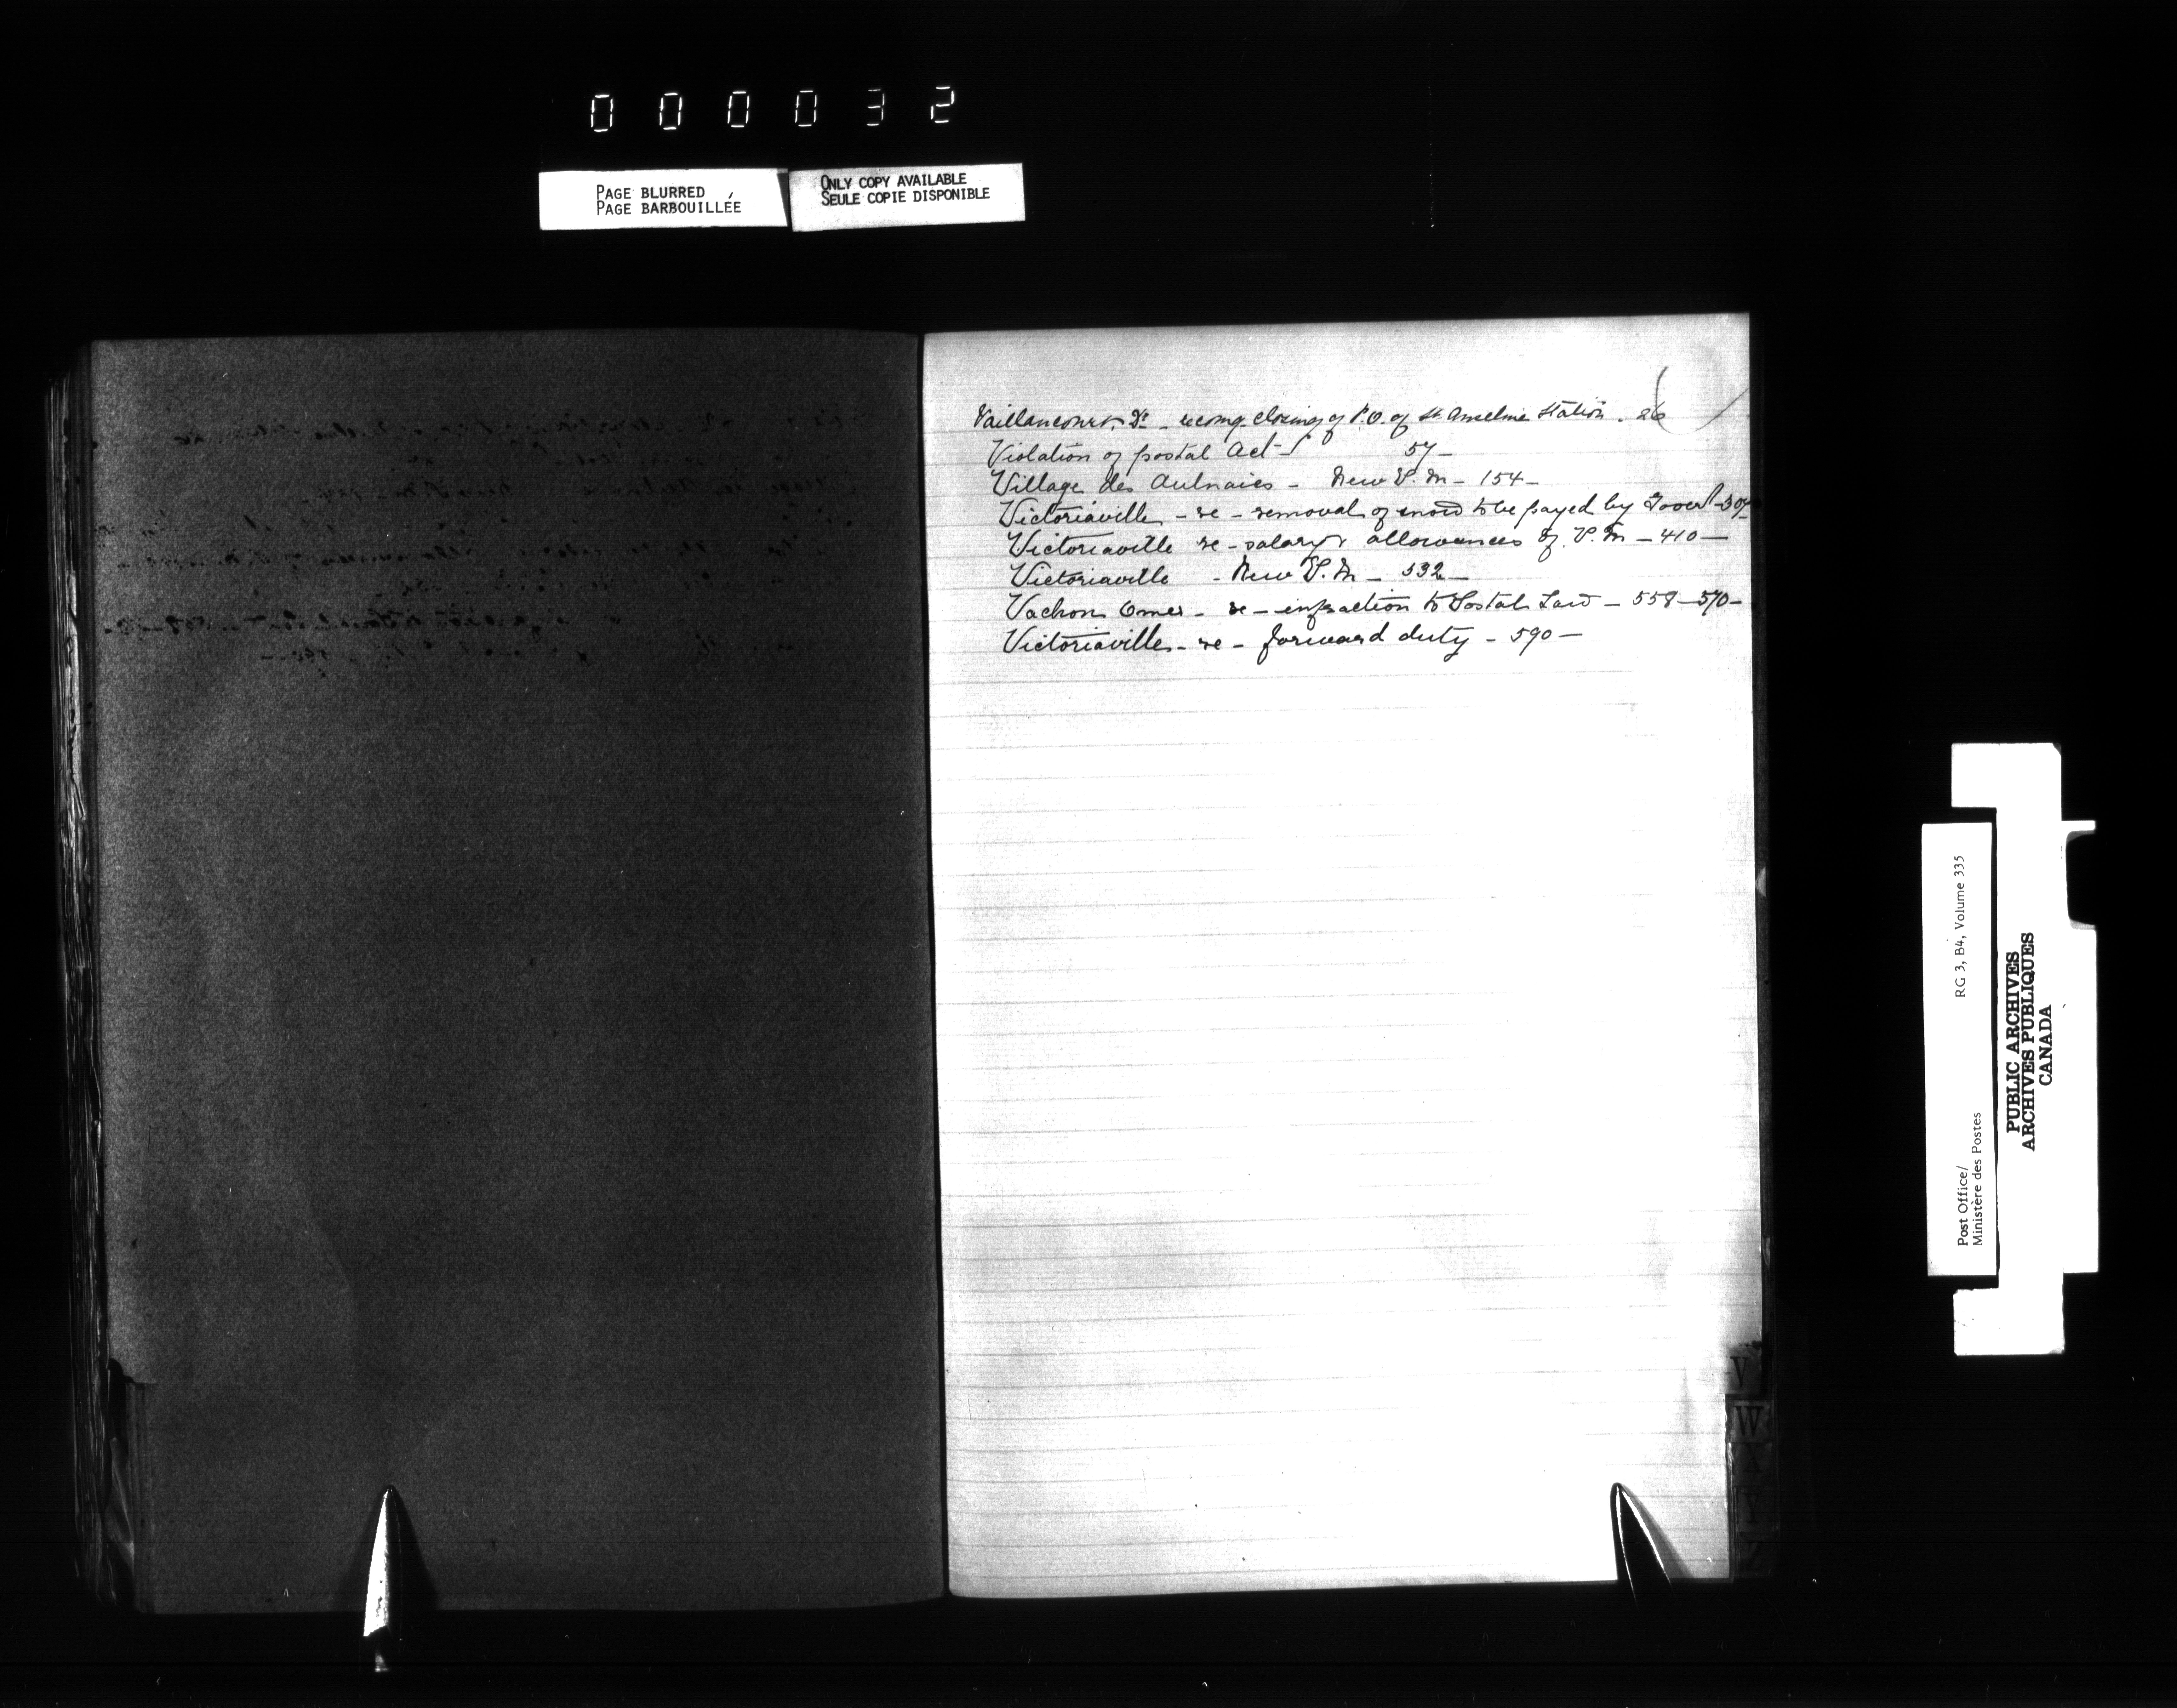 000032
PAGE BLURRED
PAGE BARBOUILLÉE
ONLY COPY AVAILABLE
SEULE COPIE DISPONIBLE
Vaillancourt Dr - recomg. closing of P.O. of St Anselme Station. 26
Violation of postal Act - 57 -
Village des Aulnaies - New P.M - 154 -
Victoriaville - re - removal of snow to be payed by Govert - 307
Victoriaville re - salary & allowances of P.M - 410 -
Victoriaville - New P.M - 532 -
Vachon Omer - re - infraction to Postal Law - 558 - 570 -
Victoriaville - re - forward duty - 590 -
V
W
X
Y
Z
Post Office/
Ministère des Postes
RG 3, B4, Volume 335
PUBLIC ARCHIVES
ARCHIVES PUBLIQUES
CANADA